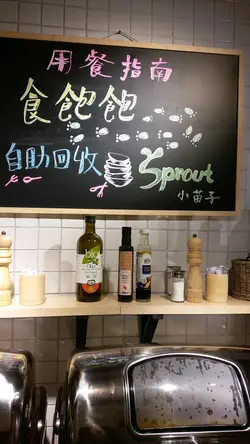 用餐指南
食飽飽
自助回收
Sprout
小苗子
bio